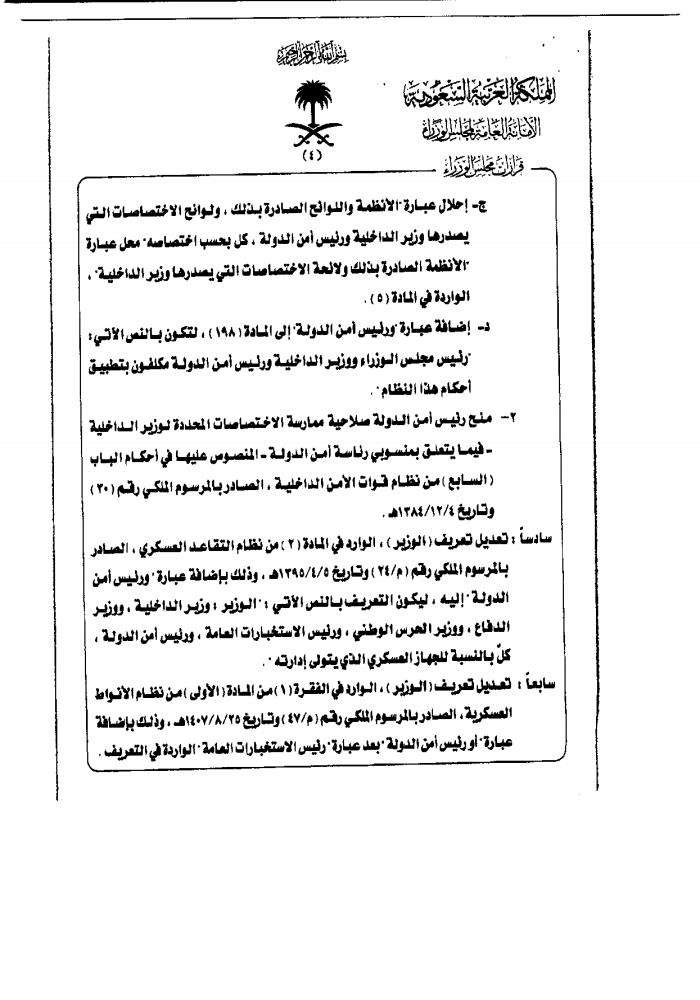 بسم الله الرحمن الرحيم
المملكة العربية السعودية
الأمانة العامة لمجلس الوزراء
(٤)
قرارات مجلس الوزراء
ج- إحلال عبارة "الأنظمة واللوائح الصادرة بذلك ، ولوائح الاختصاصات التي
يصدرها وزير الداخلية ورئيس أمن الدولة ، كل بحسب اختصاصه" محل عبارة
"الأنظمة الصادرة بذلك ولائحة الاختصاصات التي يصدرها وزير الداخلية" ،
الواردة في المادة (٥) .
د- إضافة عبارة "ورئيس أمن الدولة" إلى المادة (١٩٨) ، لتكون بالنص الآتي :
"رئيس مجلس الوزراء ووزير الداخلية ورئيس أمن الدولة مكلفون بتطبيق
أحكام هذا النظام" .
٢- منح رئيس أمن الدولة صلاحية ممارسة الاختصاصات المحددة لوزير الداخلية
- فيما يتعلق بمنسوبي رئاسة أمن الدولة - المنصوص عليها في أحكام الباب
(السابع) من نظام قوات الأمن الداخلية ، الصادر بالمرسوم الملكي رقم (٣٠)
وتاريخ ١٣٨٤/١٢/٤هـ .
سادساً : تعديل تعريف (الوزير) ، الوارد في المادة (٢) من نظام التقاعد العسكري ، الصادر
بالمرسوم الملكي رقم (م/٢٤) وتاريخ ١٣٩٥/٤/٥هـ ، وذلك بإضافة عبارة "ورئيس أمن
الدولة" إليه ، ليكون التعريف بالنص الآتي : "الوزير : وزير الداخلية ، ووزير
الدفاع ، ووزير الحرس الوطني ، ورئيس الاستخبارات العامة ، ورئيس أمن الدولة ،
كلٌ بالنسبة للجهاز العسكري الذي يتولى إدارته" .
سابعاً : تعديل تعريف (الوزير) ، الوارد في الفقرة (١) من المادة (الأولى) من نظام الأنواط
العسكرية ، الصادر بالمرسوم الملكي رقم (م/٤٧) وتاريخ ١٤٠٧/٨/٢٥هـ ، وذلك بإضافة
عبارة "أو رئيس أمن الدولة" بعد عبارة "رئيس الاستخبارات العامة" الواردة في التعريف .